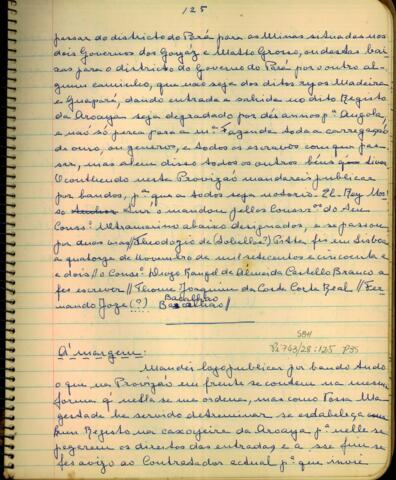 125
passar do districto do Pará para as Minas situadas nos
dois Governos dos Goyáz e Matto Grosso, ou destas bai-
xas para o districto do Governo do Pará por outro al-
gum caminho, que não seja dos ditos ryos Madeira
e Guaporé, dando entrada e sahida no dito Registo
da Aroaya seja degradado por dés annos pª Angola,
e não só perca para a mª Fazenda toda a carregação
de ouro, ou generos, e todos os escravos com que pas-
sar, mas alem disso todos os outros béns q̃ tiver.
O contheudo nesta Provizão mandareis publicar
por bandos, pª que a todos seja notorio. El-Rey Nos-
so Snr. o mandou pellos Consrºs do seu
Consº Ultramarino abaixo designados, e se passou
por duas vias // Theodozio de Cobellos (?) Pereira fes em Lisboa
a quatorze de Novembro de mil setecentos e cincoenta e
e dois // o Consrº Diogo Rangel de Almeida Castello Branco a
fes escrever // Thome Joaquim da Costa Corte Real // Fer-
nando Joze (?) Bacalhao //
SBH
Pi 743/28:125 P35
Á margem:
Mandei logo publicar por bando tudo
o que na Provizão em frente se contem na mesm
forma q̃ nella se me ordena, mas como Vossa Ma-
gestade he servido detreminar se estabaleça
hum Registo na caxoyeira da Aroaya pª nelle se
pagarem os direitos das entradas, e a esse fim se
fes avizo ao Contratador actual pª que